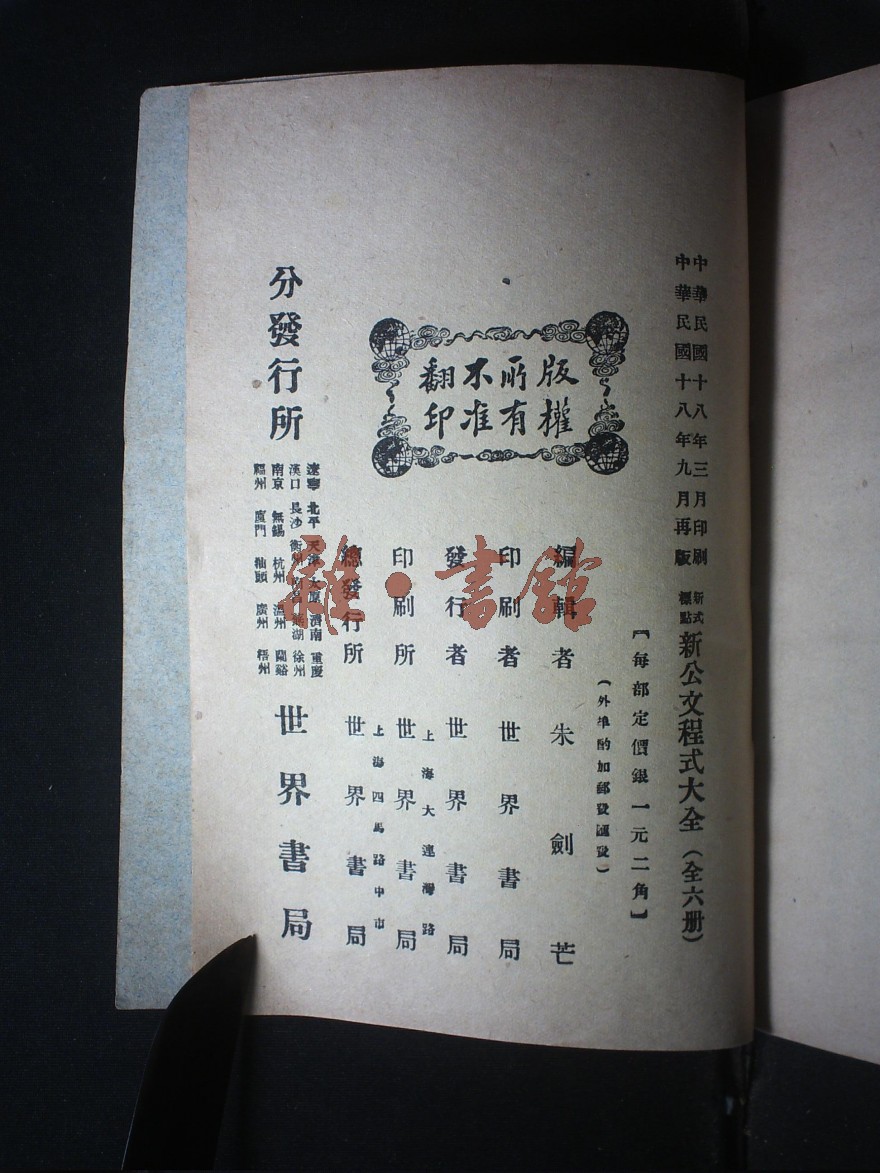 中華民國十八年三月印刷
中華民國十八年九月再版
新式標點 新公文程式大全（全六册）
【每部定價銀一元二角】
（外埠酌加郵費匯費）
版權
所有
不准
翻印
編輯者 朱劍芒
印刷者 世界書局
發行者 世界書局
上海大連灣路
印刷所 世界書局
上海四馬路中市
總發行所 世界書局
分發行所
遼寧 北平 天津 太原 濟南 重慶
漢口 長沙 衡州 南昌 蕪湖 徐州
南京 無錫 杭州 溫州 蘭谿
福州 廈門 汕頭 廣州 梧州
世界書局
雜·書館